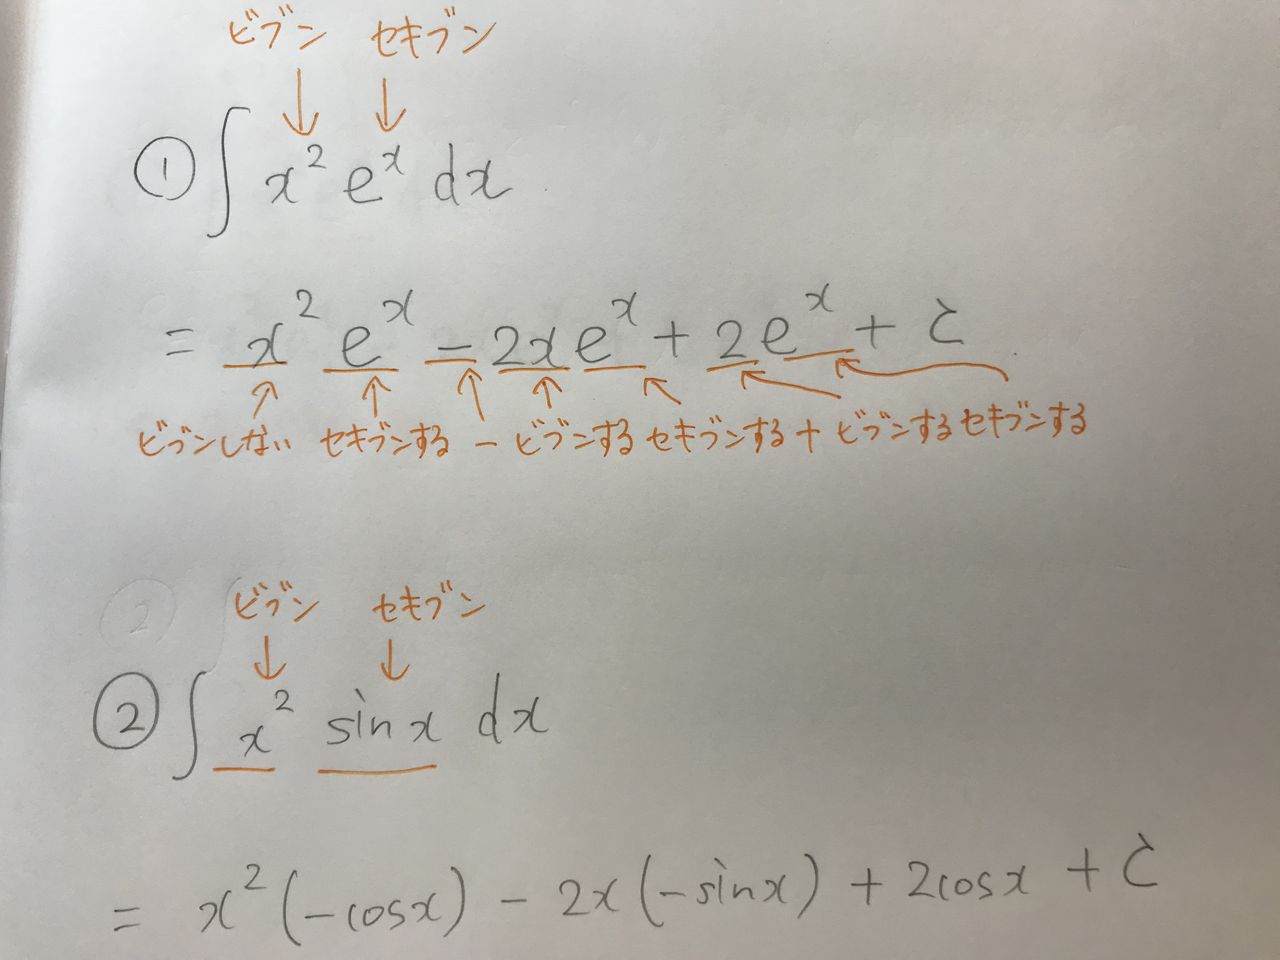 ビブン セキブン
① ∫ x² eˣ dx
= x² eˣ - 2x eˣ + 2eˣ + C
ビブンしない セキブンする - ビブンする セキブンする + ビブンする セキブンする
ビブン セキブン
② ∫ x² sin x dx
= x² (-cos x) - 2x (-sin x) + 2cos x + C